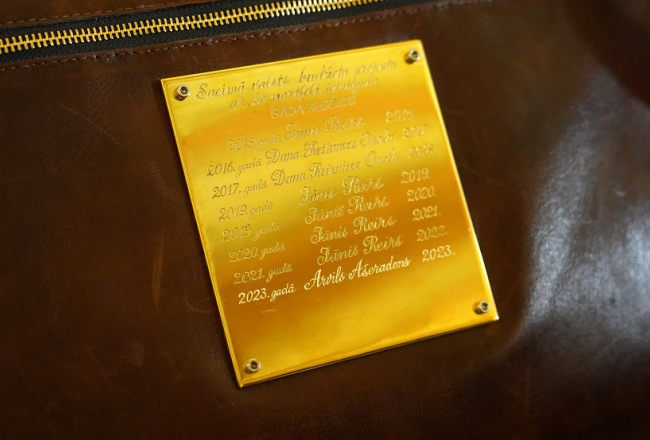 Saeimā valsts budžeta projektu
ar šo portfeli iesniguši
GADA BUDŽETS
2015. gadā Jānis Reirs 2016.
2016. gadā Dana Reizniece Ozola 2017.
2017. gadā Dana Reizniece Ozola
2019. gadā Jānis Reirs 2019.
2019. gadā Jānis Reirs 2020.
2020. gadā Jānis Reirs 2021.
2021. gadā Jānis Reirs 2022.
2023. gadā Arvils Ašeradens 2023.